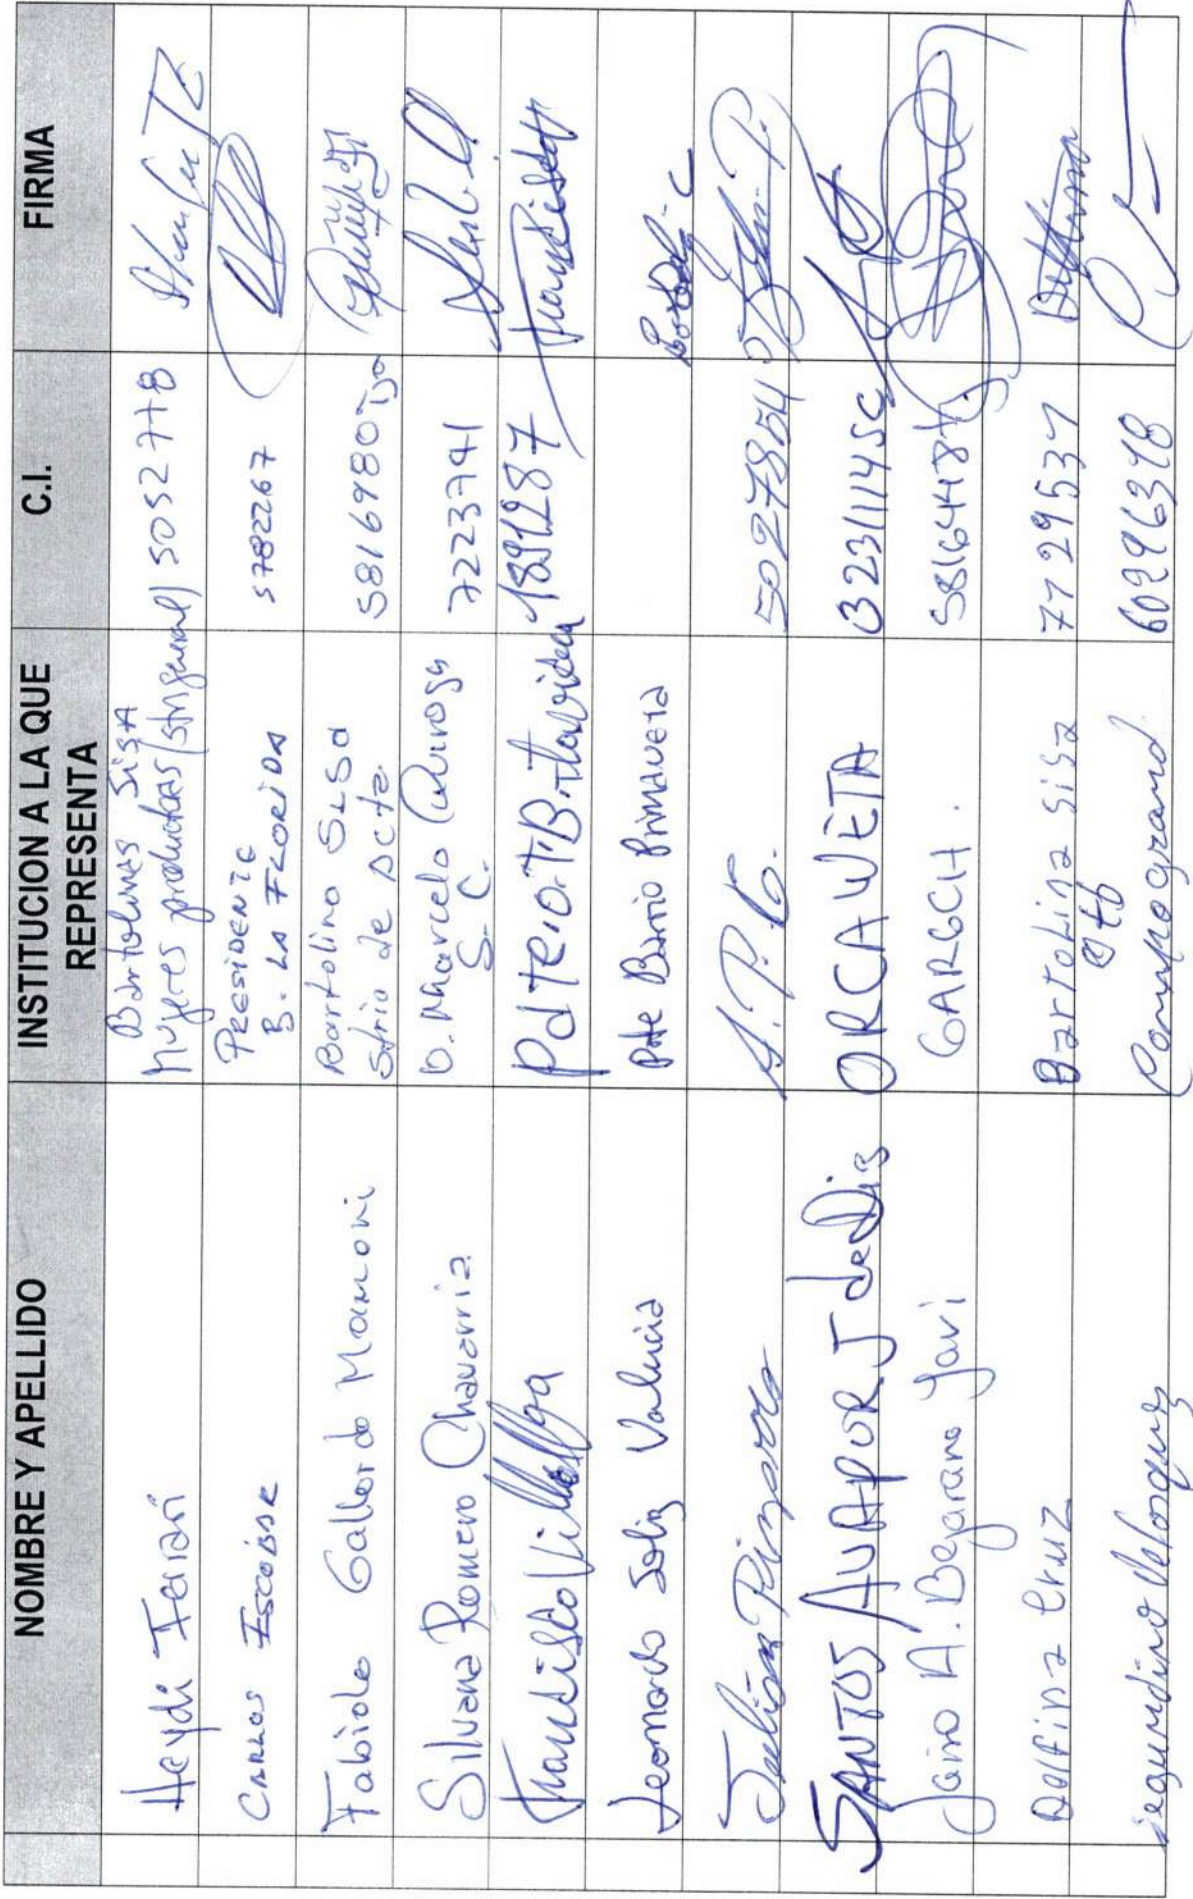 NOMBRE Y APELLIDO INSTITUCION A LA QUE REPRESENTA C.I. FIRMA
Haydi Farfán Bartolinas Sisa
Mujeres productoras 5052778
Carlos Escobar PRESIDENTE
B. LA FLORIDA 5782267
Fabiola Gallardo Mamani Bartolina Sisa
Stria de Acta 5816980 Tja
Silvana Romero Chavarria D. Marcelo Quiroga
S. C. 7223791
Francisco Villalga 1891287
Leonardo Soliz Valencia Pdte Barrio Primavera
Julián Pizarro A.P.G. 5027854
SANTOS AVAPUR J de Dis ORCAWETA
Jairo A. Bejarano Yavi GARGCH.
Delfina Cruz Bartolina Sisa 7729537 Delfina
segundino Velasquez otb
Campo grand 60296318